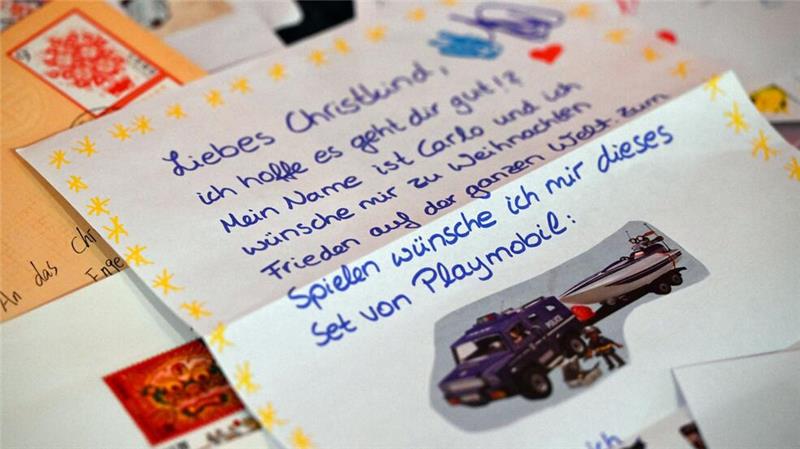 Liebes Christkind,
ich hoffe es geht dir gut!?
Mein Name ist Carlo und ich
wünsche mir zu Weihnachten
Frieden auf der ganzen Welt. Zum
Spielen wünsche ich mir dieses
Set von Playmobil:
POLICE
An das Chr
Enge
ich